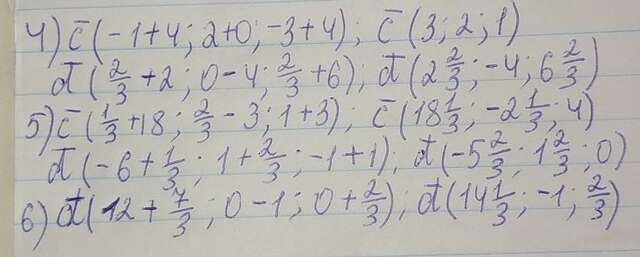 4) c̄(-1+4; 2+0; -3+4); c̄(3; 2; 1)
d̄(2/3+2; 0-4; 2/3+6); d̄(2 2/3; -4; 6 2/3)
5) c̄(1/3+18; 2/3-3; 1+3); c̄(18 1/3; -2 1/3; 4)
d̄(-6+1/3; 1+2/3; -1+1); d̄(-5 2/3; 1 2/3; 0)
6) d̄(12+7/3; 0-1; 0+2/3); d̄(14 1/3; -1; 2/3)